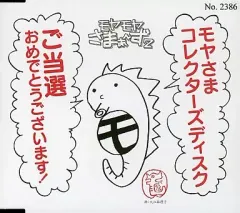 No. 2386
モヤモヤ
さまぁ~ず2
モヤさま
コレクターズディスク
ご当選
おめでとうございます!
モ